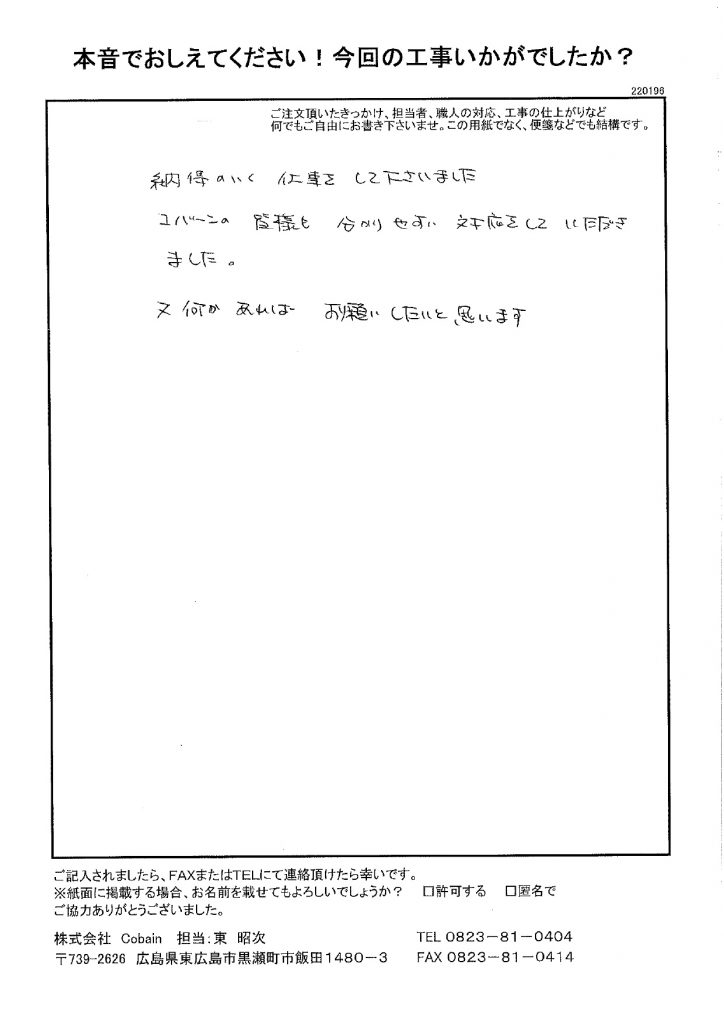 本音でおしえてください！今回の工事いかがでしたか？
220196
ご注文頂いたきっかけ、担当者、職人の対応、工事の仕上がりなど
何でもご自由にお書き下さいませ。この用紙でなく、便箋などでも結構です。
納得のいく 仕事を して下さいました
コバーンの 皆様も 分かりやすい 対応をして いただき
ました。
又 何か あれば お願いしたいと 思います
ご記入されましたら、FAXまたはTELにて連絡頂けたら幸いです。
※紙面に掲載する場合、お名前を載せてもよろしいでしょうか？ □許可する □匿名で
ご協力ありがとうございました。
株式会社 Cobain 担当：東 昭次 TEL 0823－81－0404
〒739-2626 広島県東広島市黒瀬町市飯田1480－3 FAX 0823－81－0414